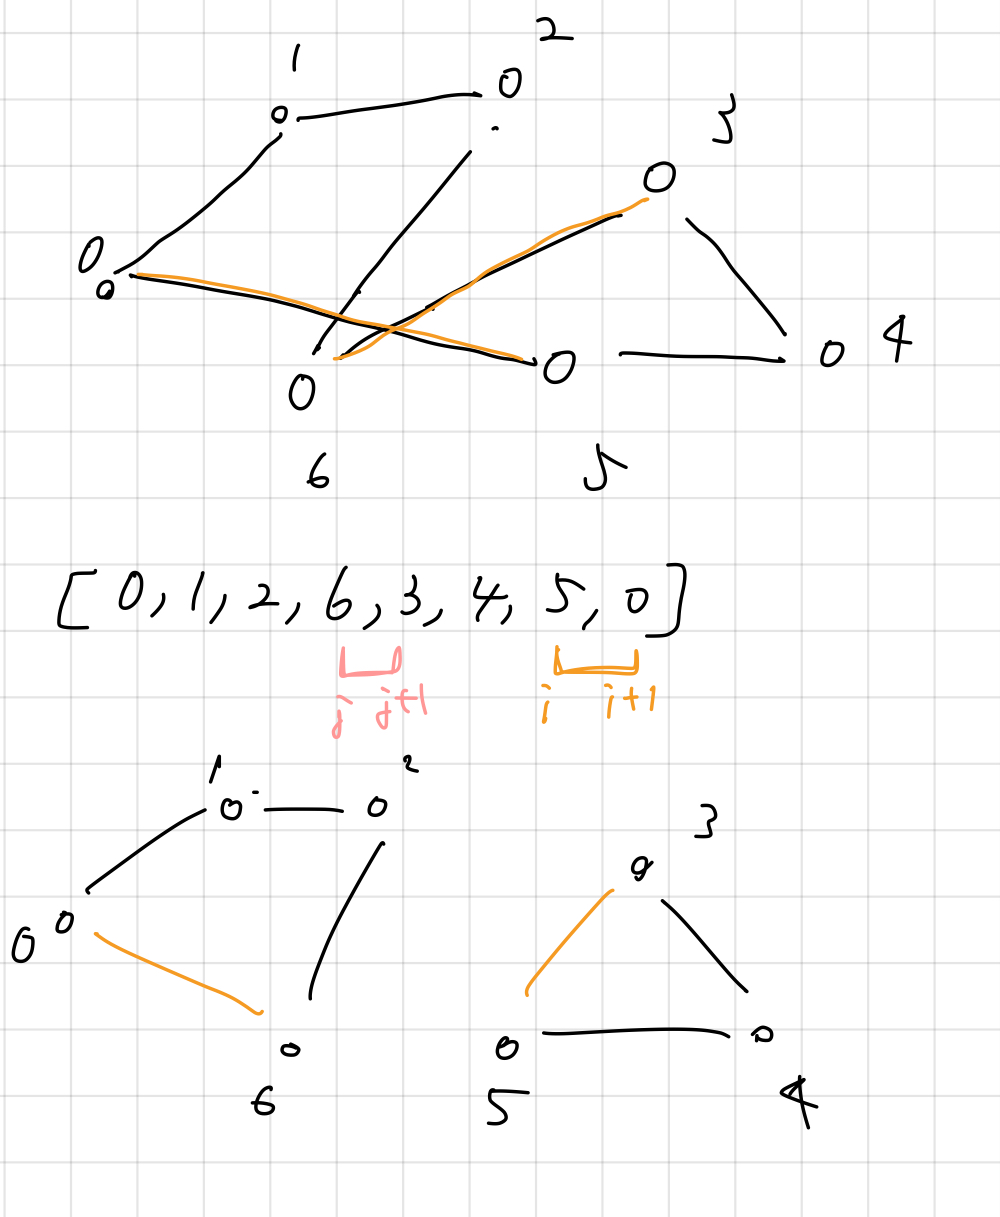 1
2
3
0
4
6
5
[0, 1, 2, 6, 3, 4, 5, 0]
j j+1 i i+1
1
2
3
0
6
5
4